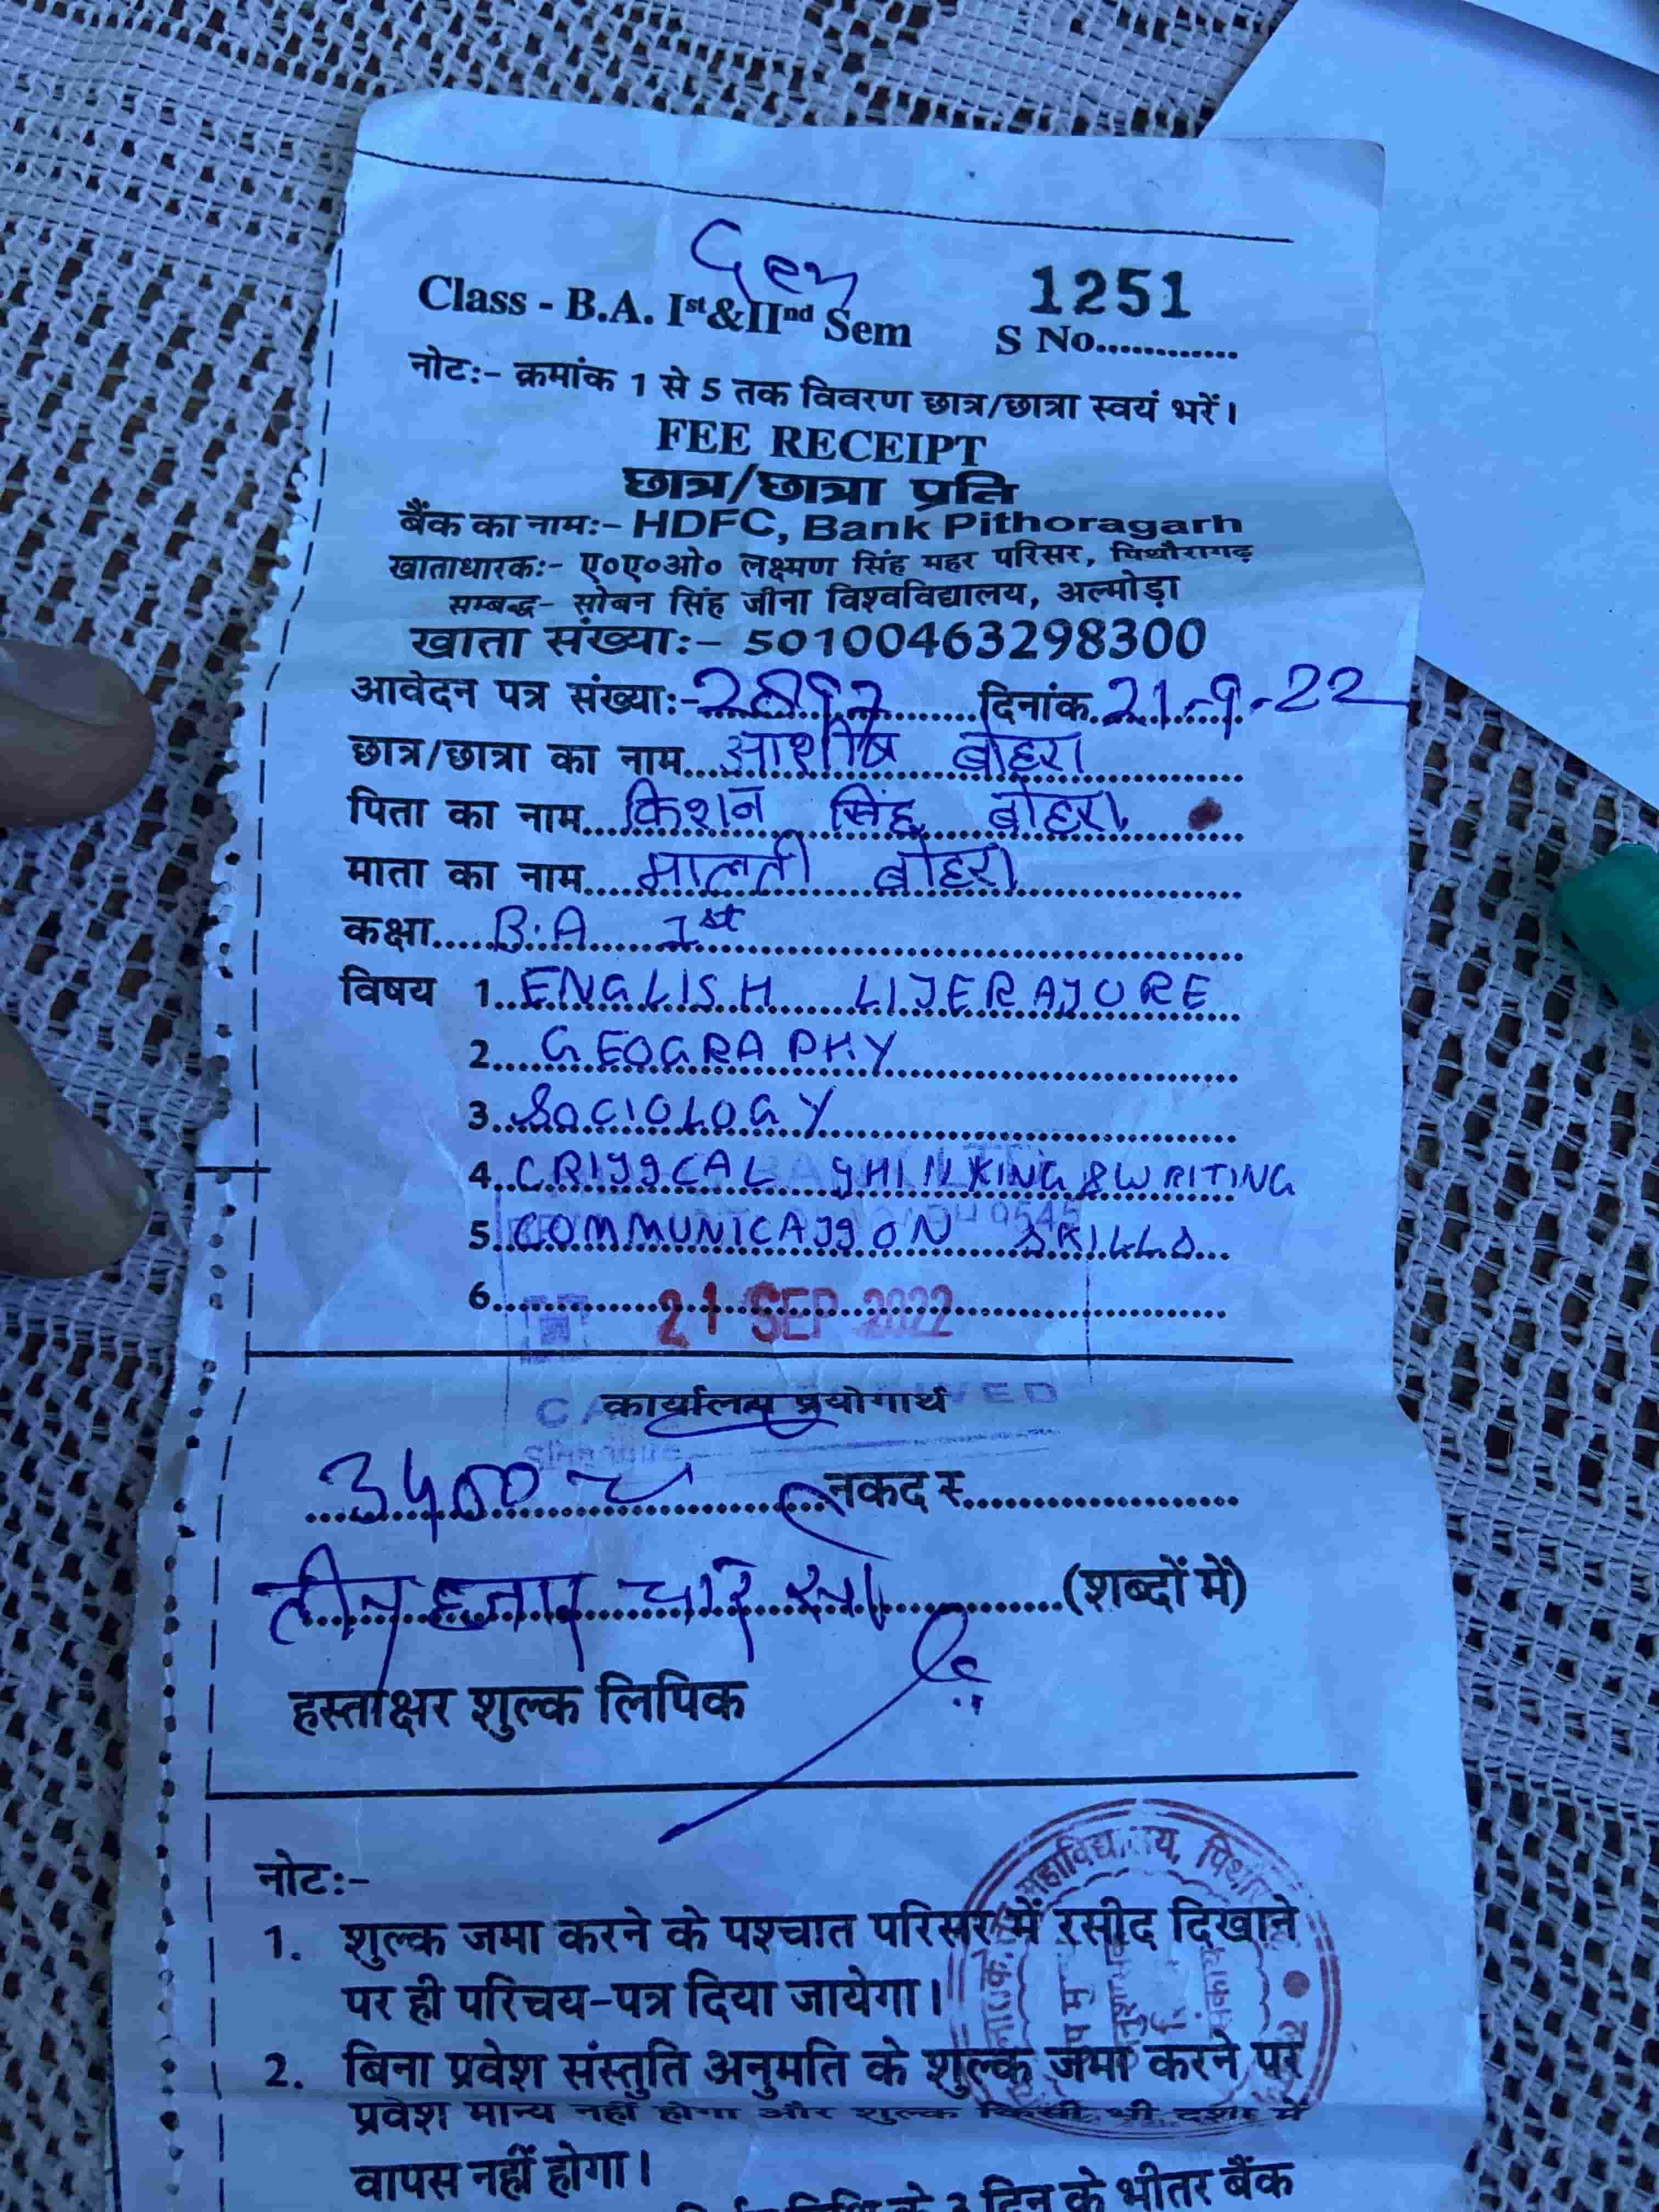 Gen
Class - B.A. Ist&IInd Sem
1251
S No............
नोटः- क्रमांक 1 से 5 तक विवरण छात्र/छात्रा स्वयं भरें।
FEE RECEIPT
छात्र/छात्रा प्रति
बैंक का नामः- HDFC, Bank Pithoragarh
खाताधारकः- ए०ए०ओ० लक्ष्मण सिंह महर परिसर, पिथौरागढ़
सम्बद्ध- सोबन सिंह जीना विश्वविद्यालय, अल्मोड़ा
खाता संख्याः- 50100463298300
आवेदन पत्र संख्याः- दिनांक 21-9-22
छात्र/छात्रा का नाम आशीष बोहरा
पिता का नाम किशन सिंह बोहरा
माता का नाम मालती बोहरा
कक्षा B.A 1st
विषय 1. ENGLISH LITERATURE
2. GEOGRAPHY
3. SOCIOLOGY
4. CRITICAL THINKING & WRITING
5. COMMUNICATION SKILLS
6. 21 SEP 2022
कार्यालय प्रयोगार्थ
3400 नकद रु
तीन हजार चार सौ (शब्दों में)
हस्ताक्षर शुल्क लिपिक
नोटः-
1. शुल्क जमा करने के पश्चात परिसर में रसीद दिखाने
पर ही परिचय-पत्र दिया जायेगा।
2. बिना प्रवेश संस्तुति अनुमति के शुल्क जमा करने पर
प्रवेश मान्य नहीं होगा और शुल्क किसी भी दशा में
वापस नहीं होगा।
3 दिन के भीतर बैंक